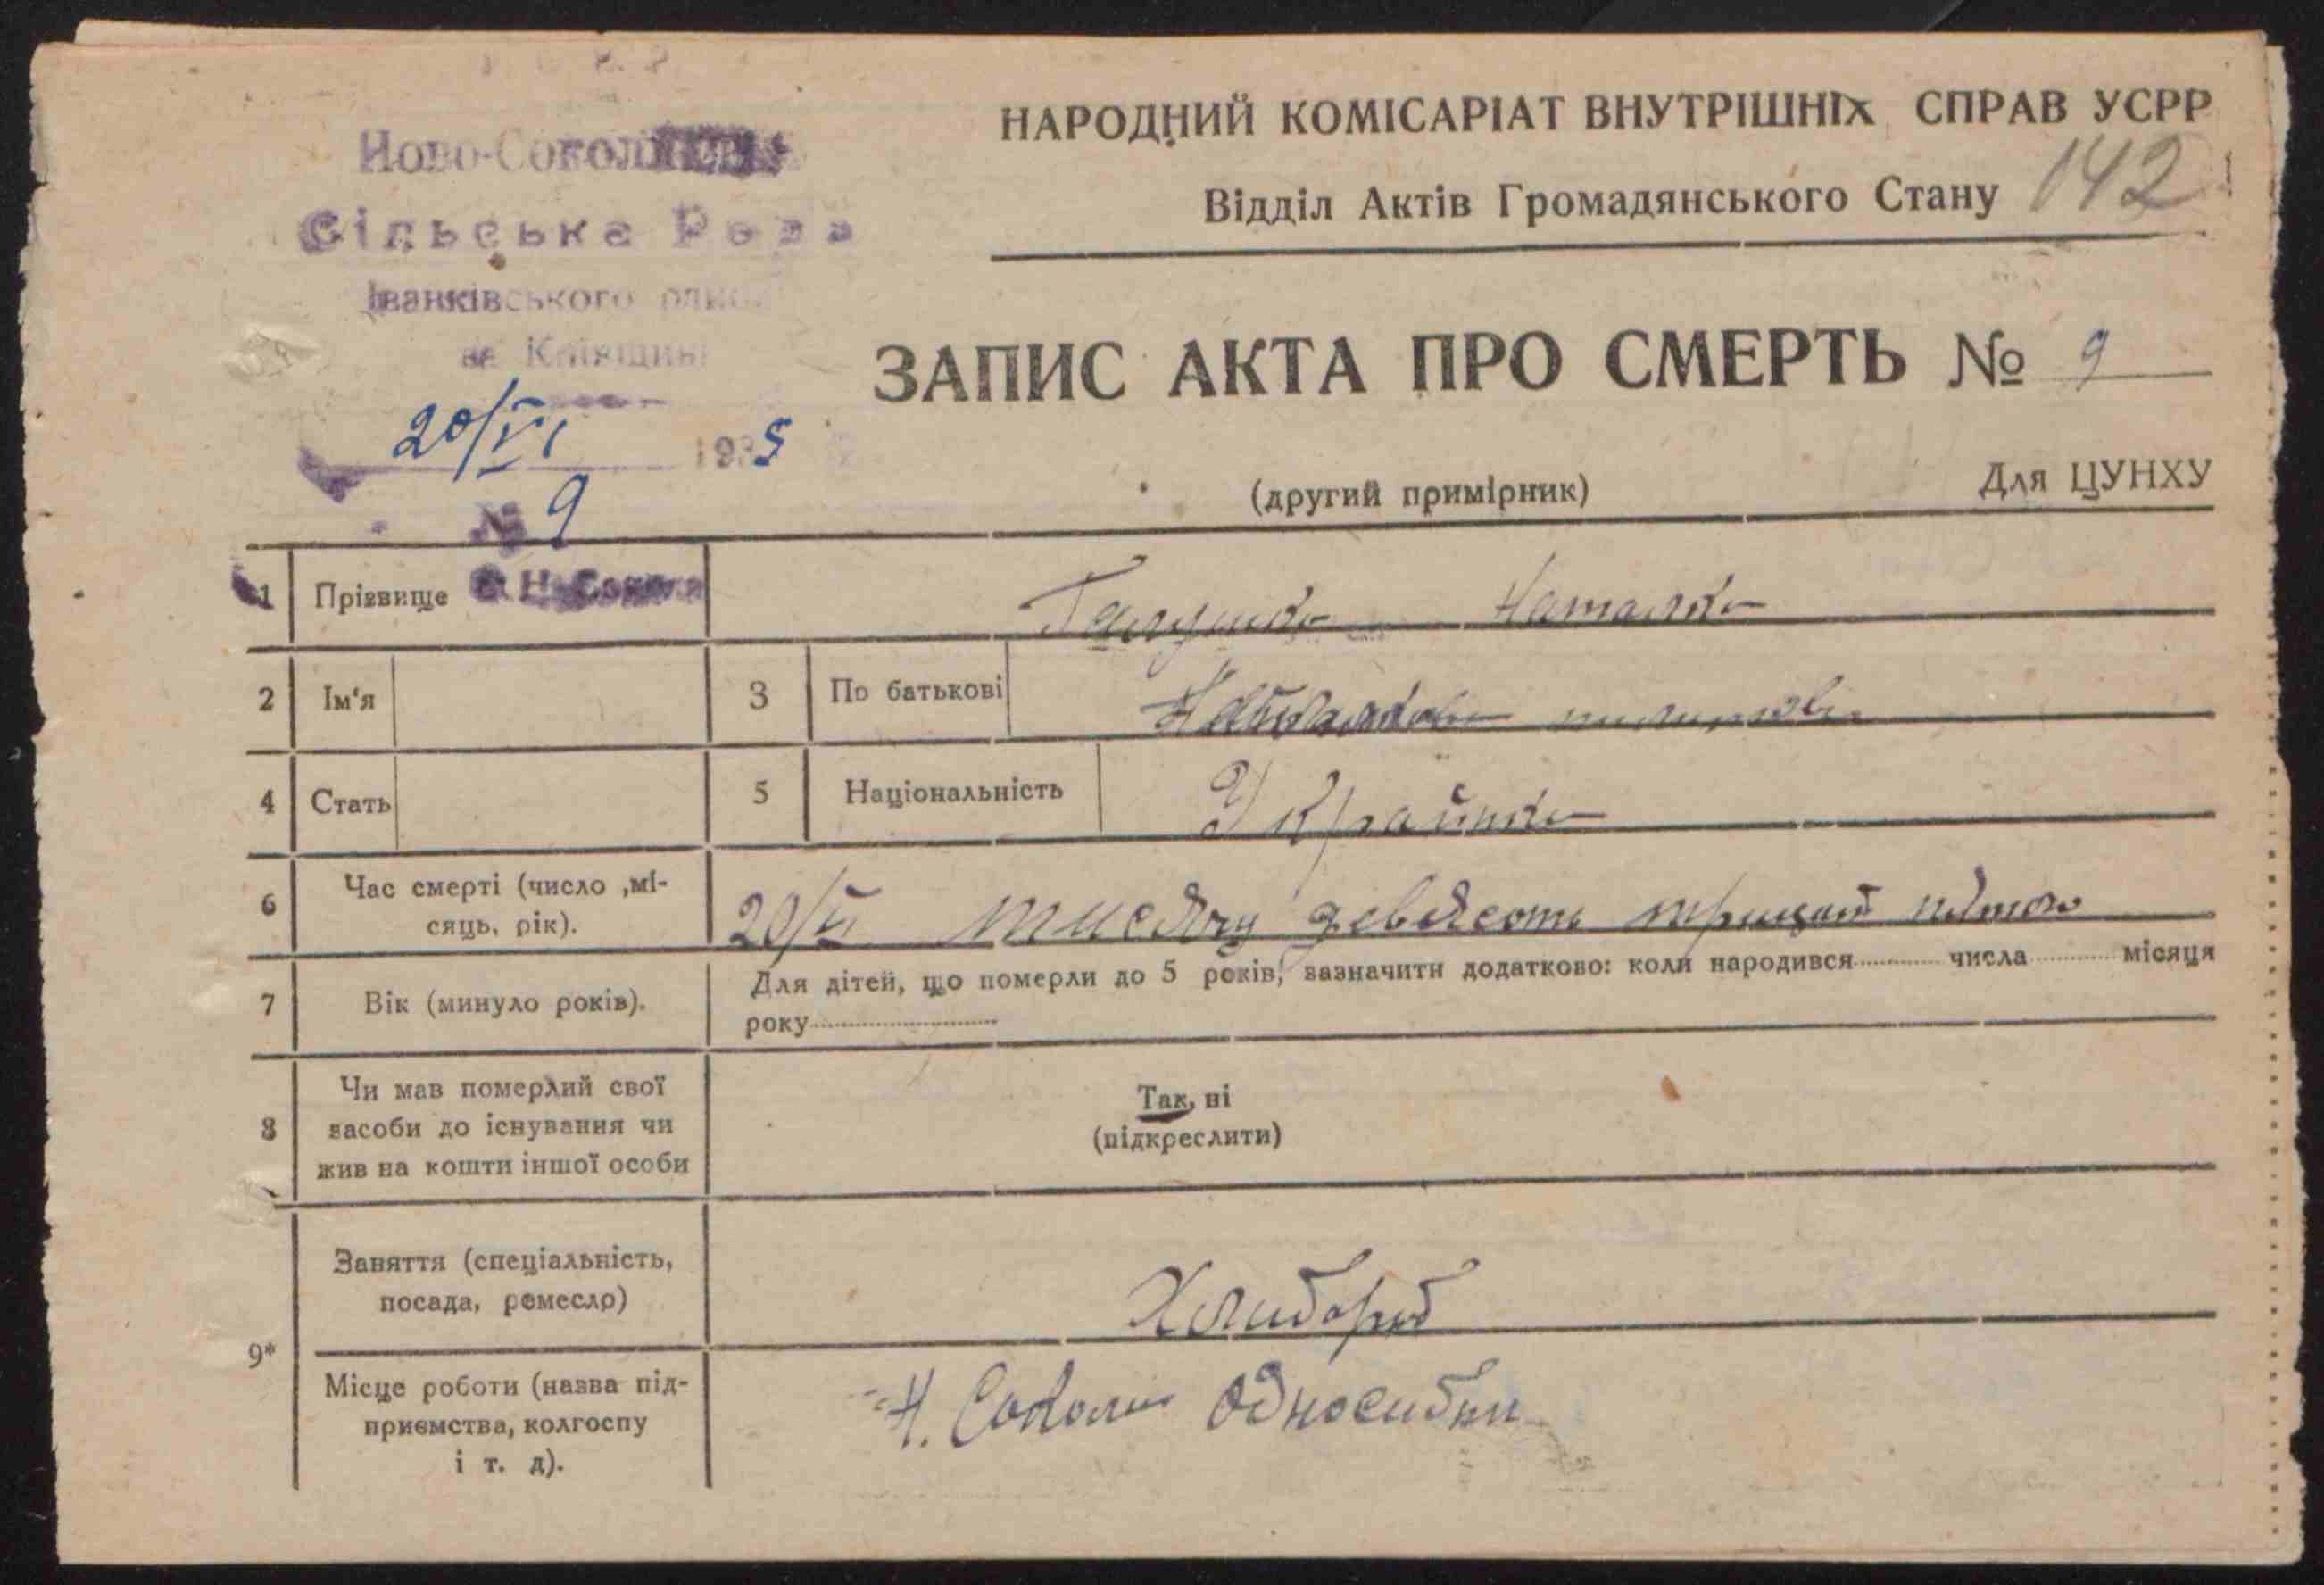 НАРОДНИЙ КОМІСАРІАТ ВНУТРІШНІХ СПРАВ УСРР
Відділ Актів Громадянського Стану
142
Ново-Соколі
Сільська Рада
Іванківського
на Київщині
20/VI 1935
№ 9
с. Н-Соколи
ЗАПИС АКТА ПРО СМЕРТЬ № 9
(другий примірник)
Для ЦУНХУ
1 Прізвище Галушко Наталка
2 Ім'я
3 По батькові
4 Стать
5 Національність Украйинка
6 Час смерті (число ,мі-
сяць, рік).
20/VI тисячу девясоть трицать пятого
7 Вік (минуло років).
Для дітей, що померли до 5 років, зазначити додатково: коли народився числа місяця
року
8 Чи мав померлий свої
засоби до існування чи
жив на кошти іншої особи
Так, ні
(підкреслити)
9*
Заняття (спеціальність,
посада, ремесло)
Хлибороб
Місце роботи (назва під-
приємства, колгоспу
і т. д).
Н. Соколи Односибни